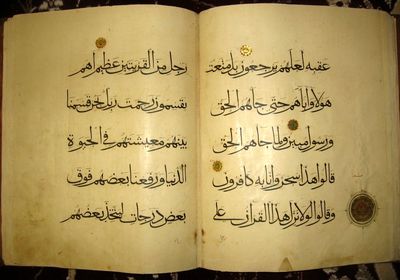 عقبه لعلهم يرجعون بل متعت
هولا واباهم حتى جاهم الحق
ورسول مبين ولما جاهم الحق
قالوا هذا سحر وانا به كافرون
وقالوا لولا نزل هذا القران على
رجل من القريتين عظيم اهم
يقسمون رحمت ربك نحن قسمنا
بينهم معيشتهم في الحيوة
الدنيا ورفعنا بعضهم فوق
بعض درجات ليتخذ بعضهم